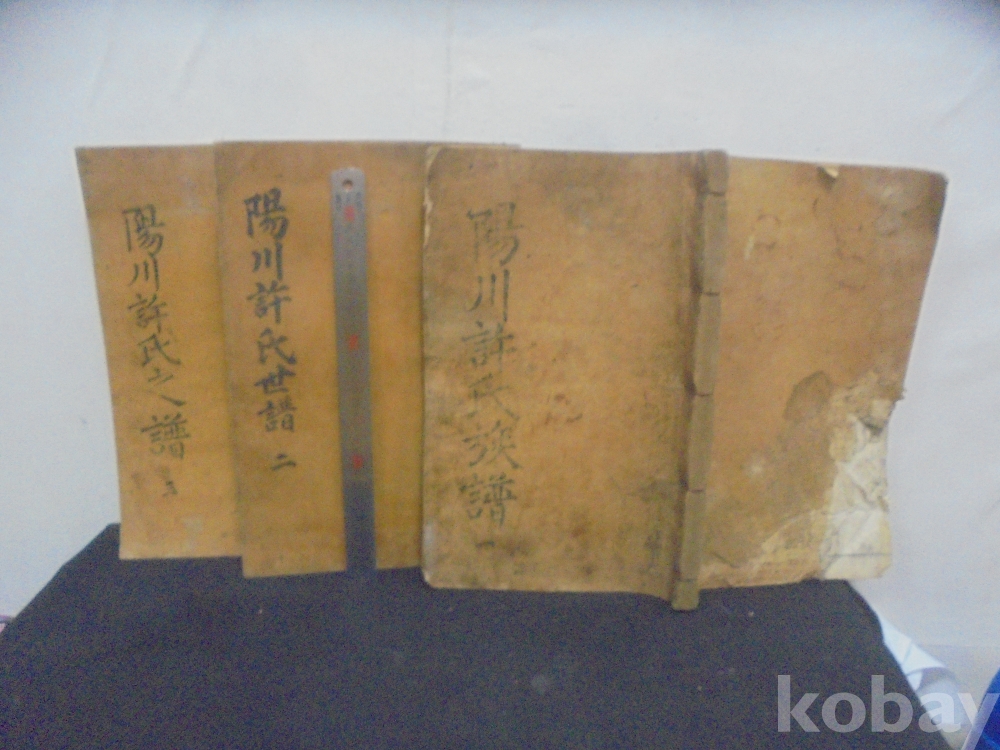 陽川許氏之譜
陽川許氏世譜 二
陽川許氏族譜 一
kobay